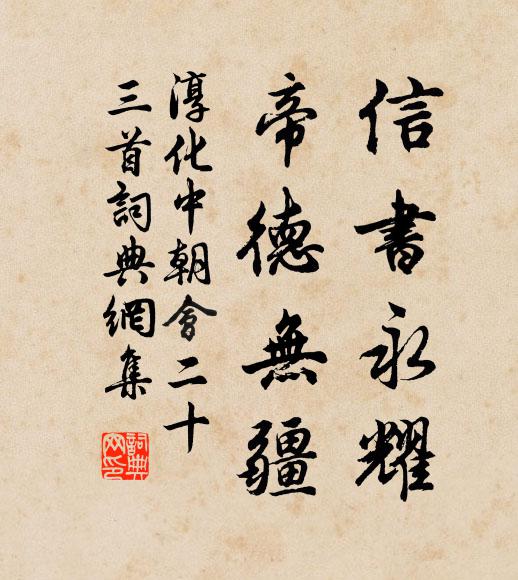 信書永耀
帝德無疆
淳化中朝會二十
三首詞典網集
詞典
网印